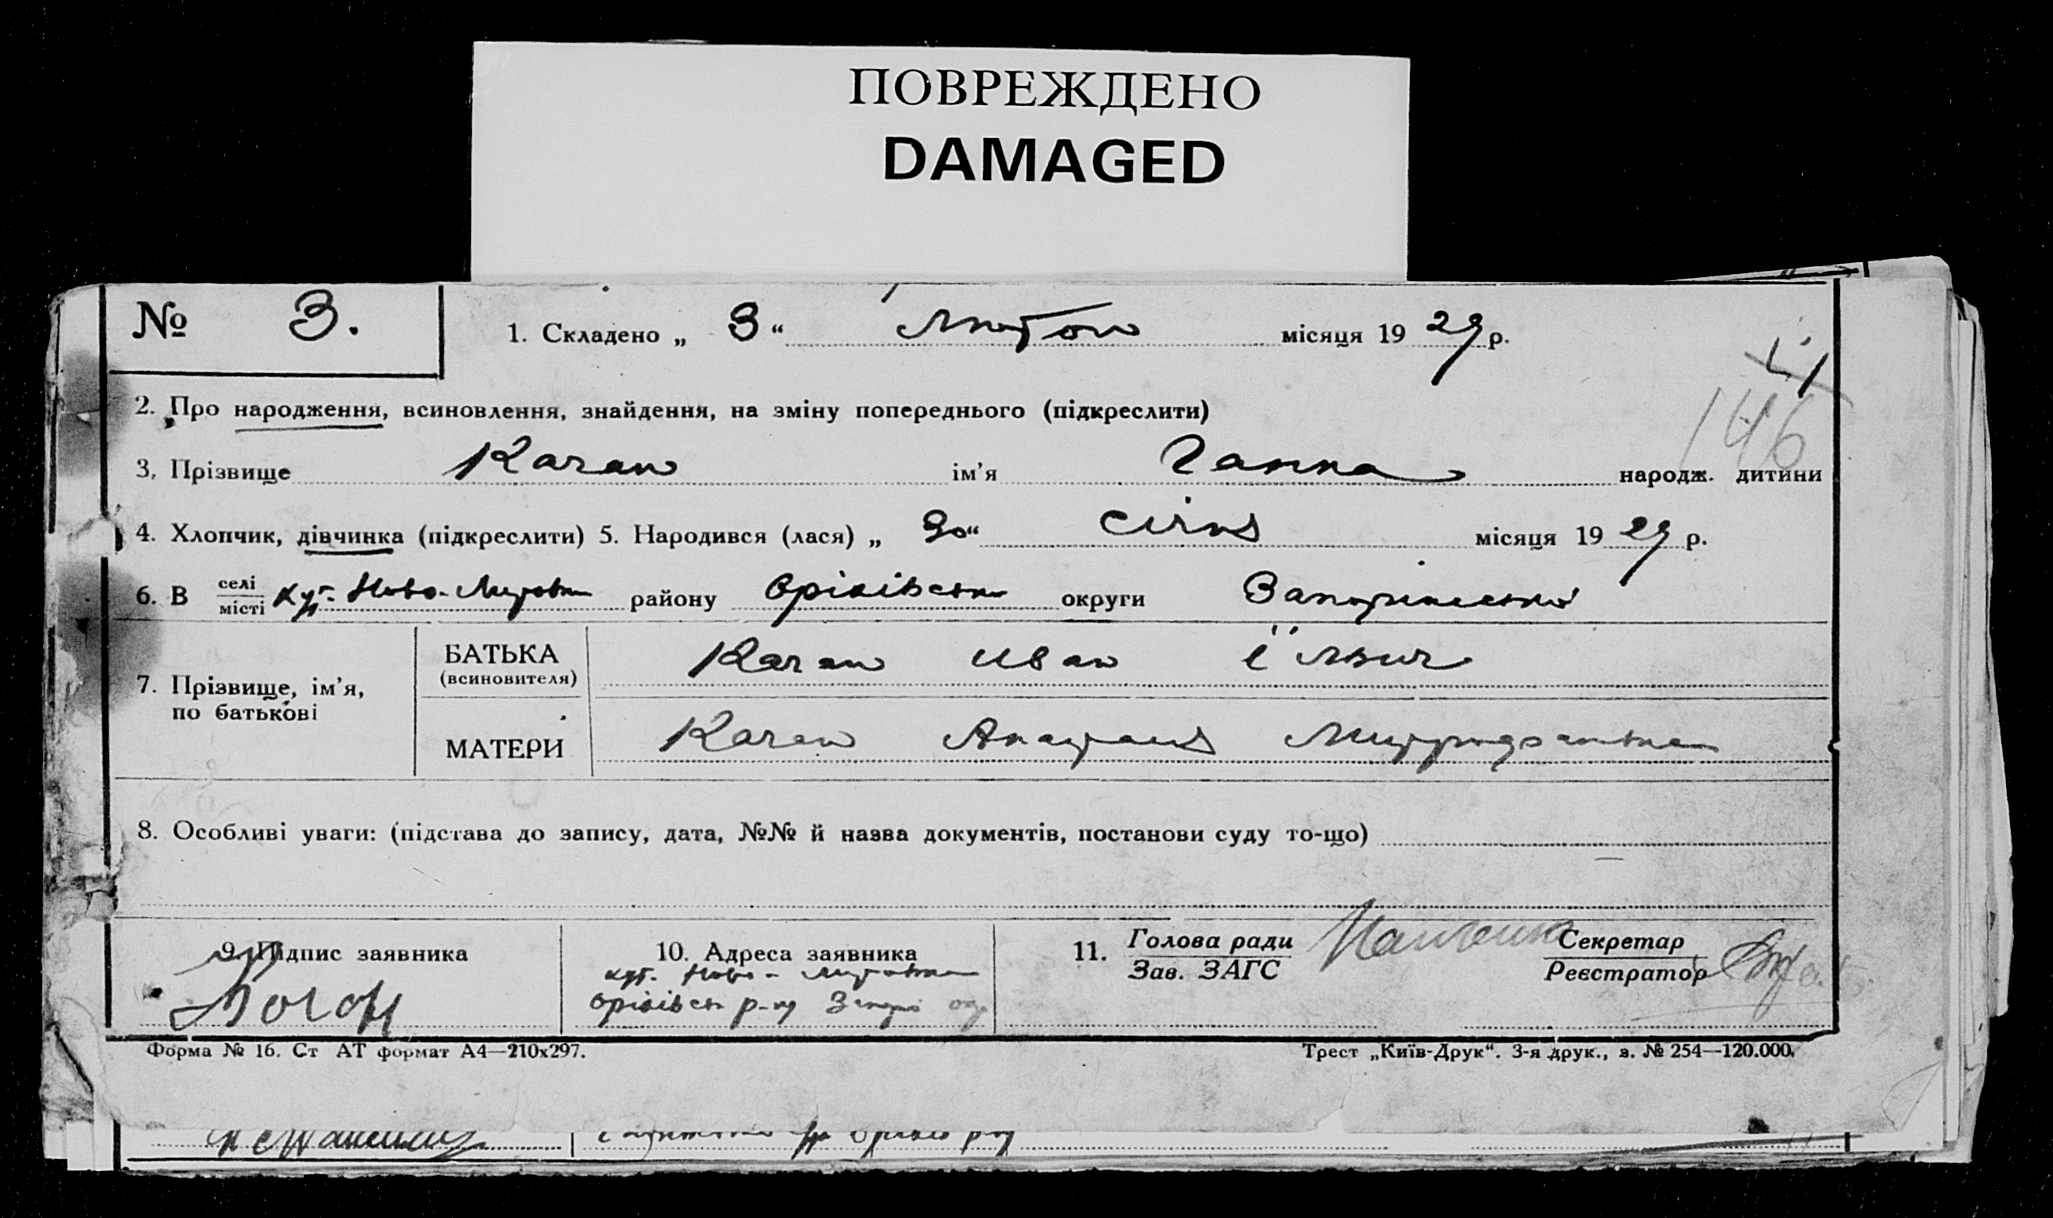 ПОВРЕЖДЕНО
DAMAGED
№ 3.
1. Складено „ 3 “ Лютого місяця 19 29 р.
146
2. Про народження, всиновлення, знайдення, на зміну попереднього (підкреслити)
3, Прізвище Качан ім’я Ганна народж. дитини
4. Хлопчик, дівчинка (підкреслити) 5. Народився (лася) „ 30 “ січня місяця 19 29 р.
6. В селі місті хут. Ново- району Оріхівськ округи Запорізької
7. Прізвище, ім’я, по батькові
БАТЬКА (всиновителя) Качан Иван Їлвич
МАТЕРИ Качан Анастасія
8. Особливі уваги: (підстава до запису, дата, №№ й назва документів, постанови суду то-що)
9. Підпис заявника
10. Адреса заявника
хут. Ново-
Оріхівськ р-ну
11. Голова ради Зав. ЗАГС
Секретар Реєстратор
Форма № 16. Ст АТ формат А4—210х297.
Трест „Київ-Друк“. 3-я друк., з. № 254—120.000.